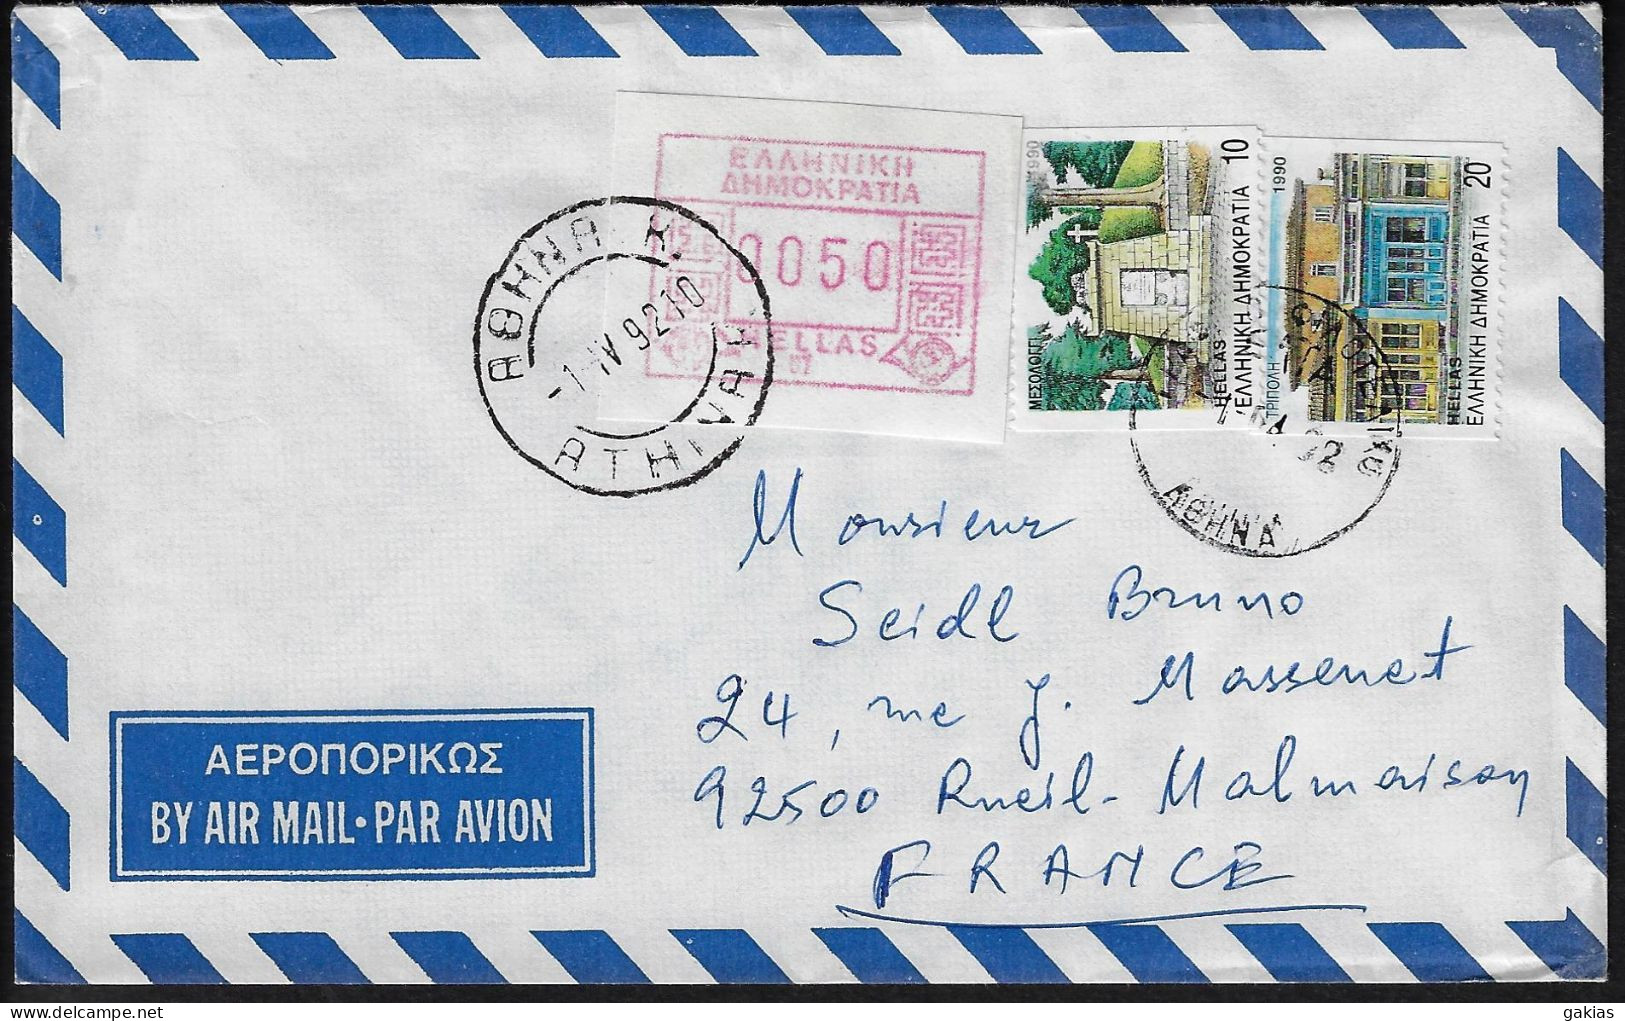 ΕΛΛΗΝΙΚΗ
ΔΗΜΟΚΡΑΤΙΑ
0050
HELLAS
07
ΑΘΗΝΑ Κ
-1 IV 92 10
ATHINA K
1990
10
ΜΕΣΟΛΟΓΓΙ
HELLAS
ΕΛΛΗΝΙΚΗ ΔΗΜΟΚΡΑΤΙΑ
1990
20
ΤΡΙΠΟΛΗ
HELLAS
ΕΛΛΗΝΙΚΗ ΔΗΜΟΚΡΑΤΙΑ
92
ΑΘΗΝΑ
Monsieur
Seidl Bruno
24, rue J. Massenet
92500 Rueil-Malmaison
FRANCE
ΑΕΡΟΠΟΡΙΚΩΣ
BY AIR MAIL•PAR AVION
gakias